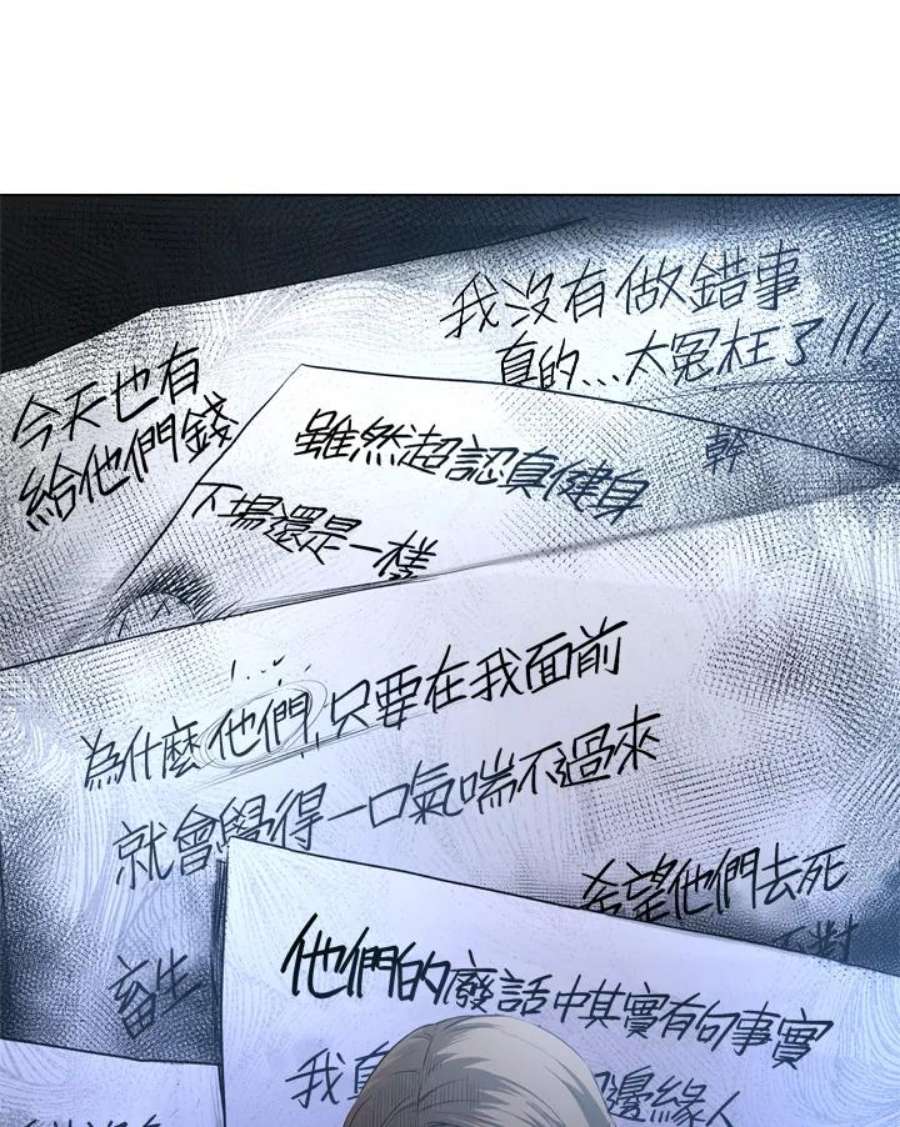 我沒有做錯事
真的...太冤枉了!!!
今天也有
給他們錢
雖然超認真健身
幹
下場還是一樣
為什麼他們,只要在我面前
就會學得一口氣喘不過來
希望他們去死
不對
畜生
他們的廢話中其實有句事實
我真
邊緣人